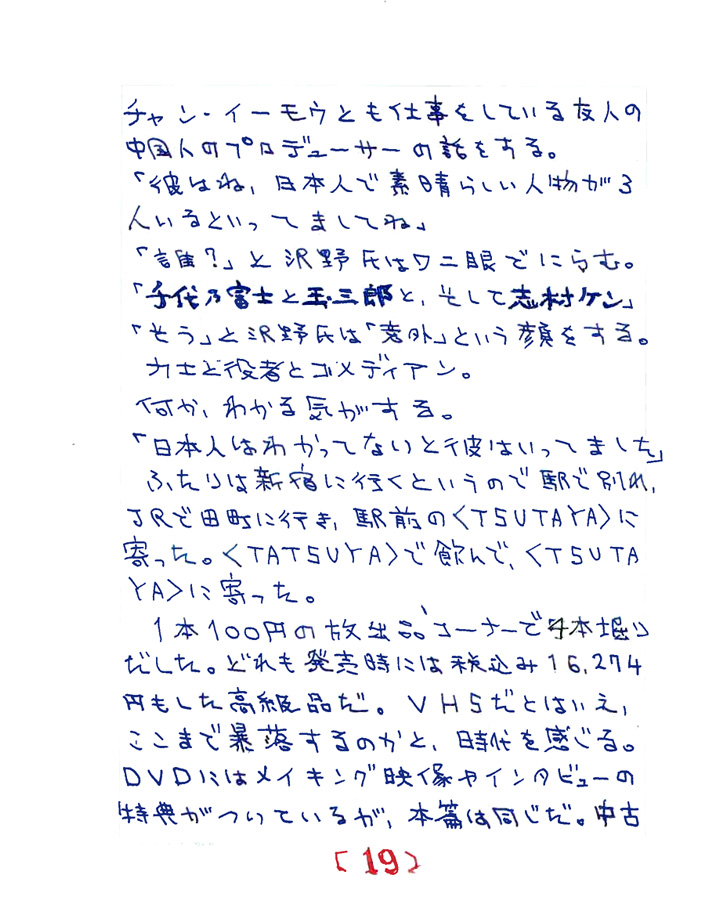 チャン・イーモウとも仕事をしている友人の
中国人のプロデューサーの話をする。
「彼はね、日本人で素晴らしい人物が3
人いるといってましてね」
「誰？」と沢野氏はワニ眼でにらむ。
「千代乃富士と玉三郎と、そして志村ケン」
「そう」と沢野氏は「意外」という顔をする。
力士と役者とコメディアン。
何か、わかる気がする。
「日本人はわかってないと彼はいってました」
ふたりは新宿に行くというので駅で別れ、
JRで田町に行き、駅前の〈TSUTAYA〉に
寄った。〈TATSUYA〉で飲んで、〈TSUTA
YA〉に寄った。
1本100円の放出品コーナーで4本掘り
だした。どれも発売時には税込み16,274
円もした高級品だ。VHSだとはいえ、
ここまで暴落するのかと、時代を感じる。
DVDにはメイキング映像やインタビューの
特典がついているが、本篇は同じだ。中古
[19]